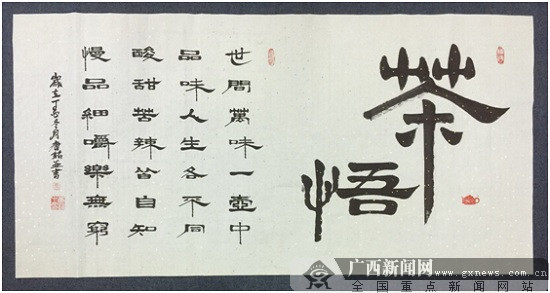 茶
悟
世間萬味一壺中
品味人生各不同
酸甜苦辣皆自知
慢品細嚼樂無窮
广西新闻网
www.gxnews.com.cn
全国重点新闻网站